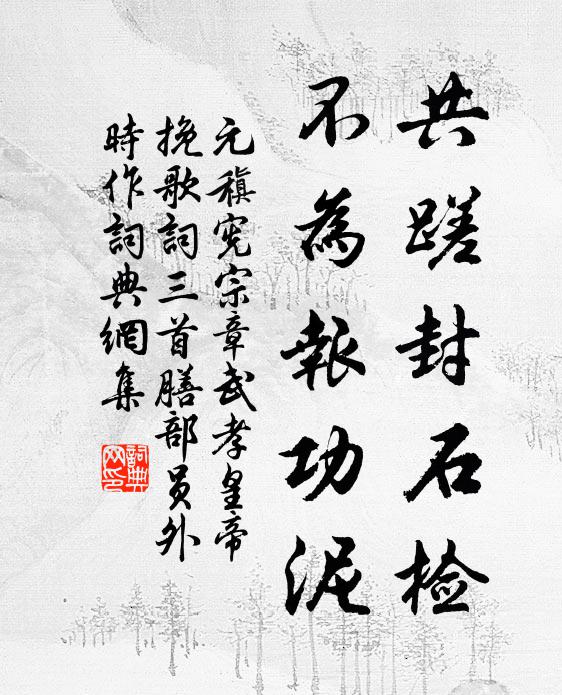 共蹉封石检
不為報功泥
元稹宪宗章武孝皇帝
挽歌詞三首膳部员外
時作詞典網集
詞典
网印